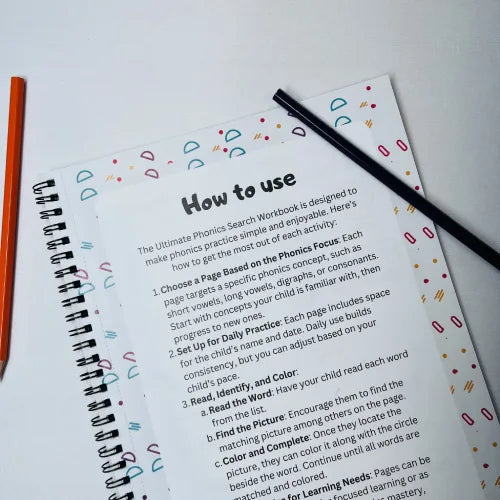 How to use
The Ultimate Phonics Search Workbook is designed to
make phonics practice simple and enjoyable. Here's
how to get the most out of each activity:
1. Choose a Page Based on the Phonics Focus: Each
page targets a specific phonics concept, such as
short vowels, long vowels, digraphs, or consonants.
Start with concepts your child is familiar with, then
progress to new ones.
2. Set Up for Daily Practice: Each page includes space
for the child's name and date. Daily use builds
consistency, but you can adjust based on your
child's pace.
3. Read, Identify, and Color:
a. Read the Word: Have your child read each word
from the list.
b. Find the Picture: Encourage them to find the
matching picture among others on the page.
c. Color and Complete: Once they locate the
picture, they can color it along with the circle
beside the word. Continue until all words are
matched and colored.
for Learning Needs: Pages can be
focused learning or as
mastery.